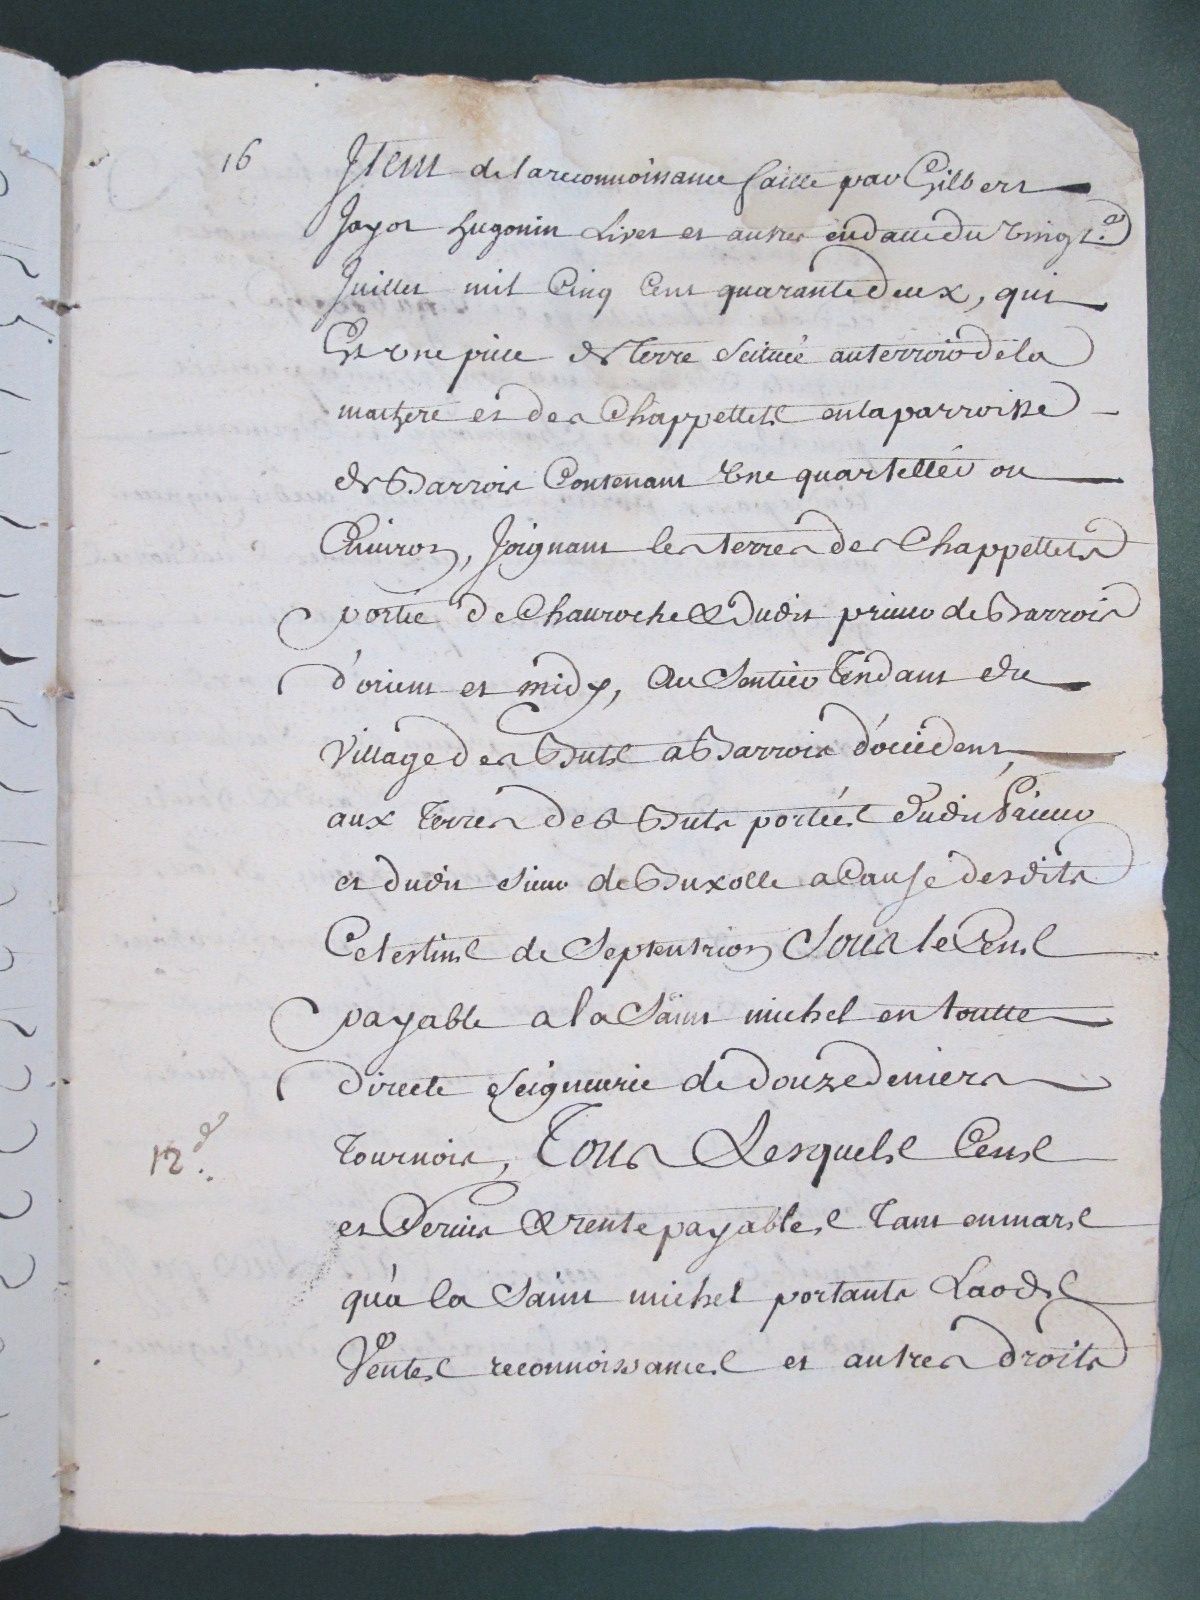 16
Item de la reconnoissance faitte par Gilbert
Jayot hugonin Livet et autres en datte du vingt
Juillet mil Cinq Cent quarante deux, qui
Est Une piece de Terre Scituée au terroir de la
et des Chappettes en la parroisse
de Barrois Contenant Une quartellée ou
Environ, Joignant les terres des Chappettes
portée de Chauroche & dudit prieur de Barrois
d'orient et midy, Au Sentier Tendant du
Village des Buts a Barrois d'occident,
aux Terres des Buts portées dudit Prieur
et dudit sieur de Buxolle a Cause desdits
Celestins de Septentrion Sous le Cens
payable a la Saint michel en toutte
Directe Seigneurie de Douze Deniers
12 d.
Tournois, Tous Lesquels Cens
et Deniers & rente payables Tant en mars
qu'a la Saint michel portants Laods
Ventes reconnoissances et autres droits